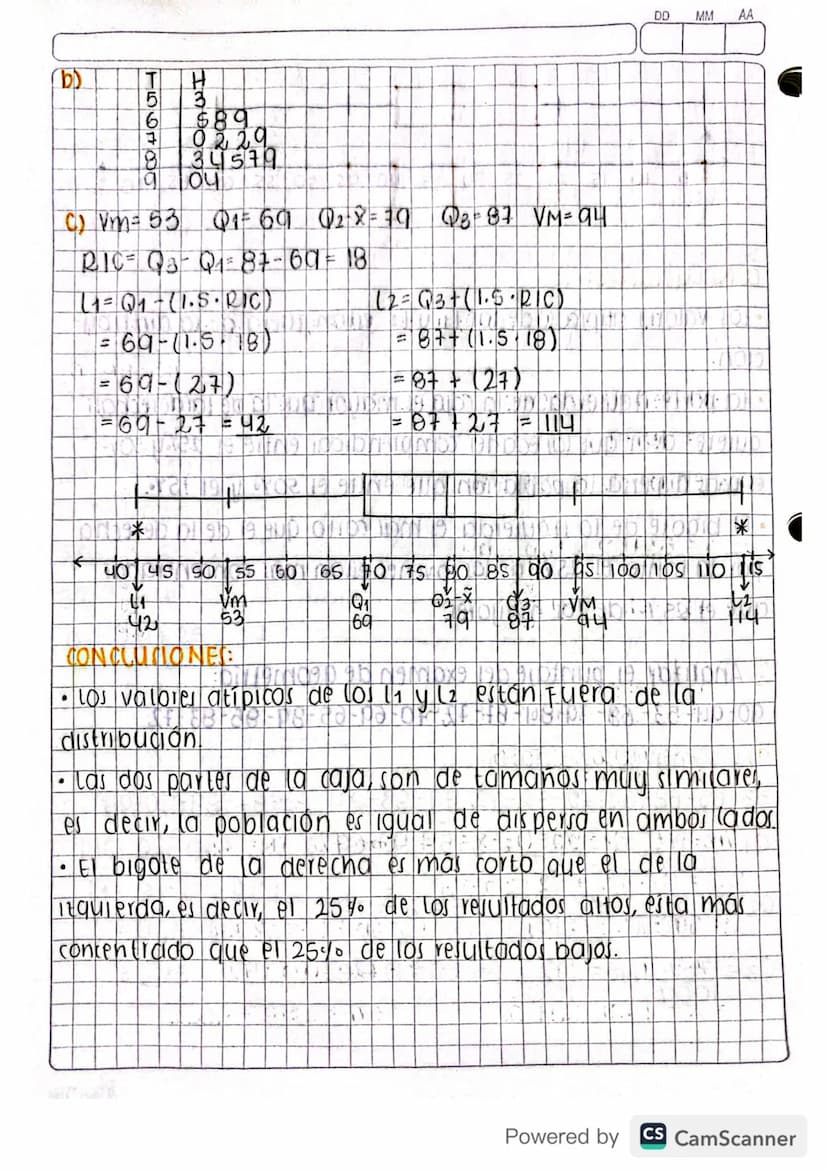 DD MM AA
b) T H
5 3
6 589
7 0229
8 34579
9 04
c) Vm= 53 Q1= 69 Q2-x̃= 79 Q3= 87 VM= 94
RIC= Q3- Q1= 87-69= 18
L1= Q1-(1.5·RIC) L2= Q3+(1.5·RIC)
= 69-(1.5·18) = 87+(1.5·18)
= 69-(27) = 87+(27)
= 69-27 = 42 = 87+27 = 114
* *
40 45 50 55 60 65 70 75 80 85 90 95 100 105 110 115
L1 Vm Q1 Q2-x̃ Q3 VM L2
42 53 69 79 87 94 114
CONCLUSIONES:
• Los valores atípicos de los L1 y L2 están fuera de la
distribución.
• Las dos partes de la caja, son de tamaños muy similares,
es decir, la población es igual de dispersa en ambos lados.
• El bigote de la derecha es más corto que el de la
izquierda, es decir, el 25% de los resultados altos, esta más
concentrado que el 25% de los resultados bajos.
Powered by CS CamScanner